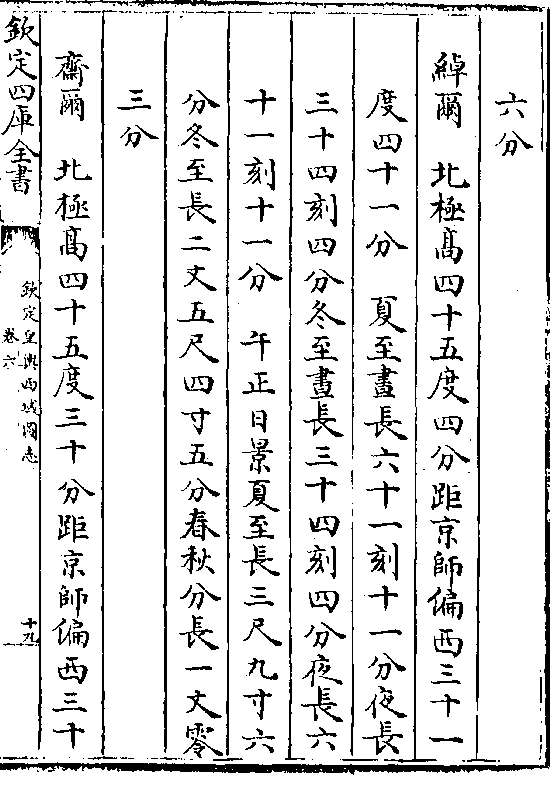 六分
綽爾　北極髙四十五度四分距京師偏西三十一
度四十一分　夏至晝長六十一刻十一分夜長
三十四刻四分冬至晝長三十四刻四分夜長六
十一刻十一分　午正日景夏至長三尺九寸六
分冬至長二丈五尺四寸五分春秋分長一丈零
三分
齋爾　北極髙四十五度三十分距京師偏西三十
欽定四庫全書
欽定皇輿西域圖志
卷六
十九